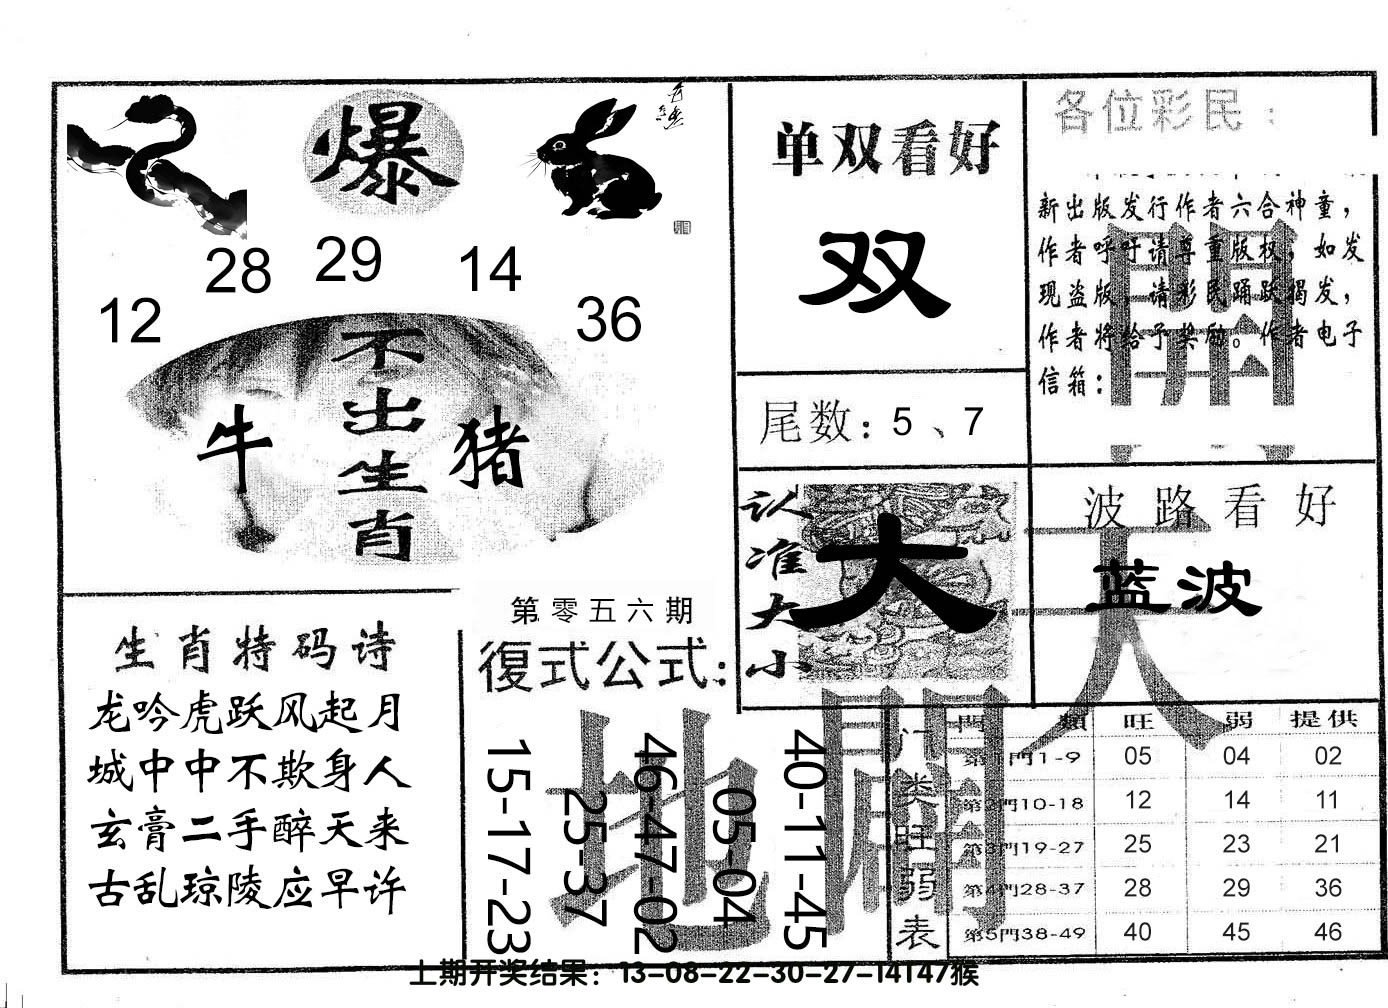 爆
28 29 14
12 36
不出生肖
牛 猪
单双看好
双
尾数：5、7
各位彩民：
新出版发行作者六合神童，
作者呼吁请尊重版权，如发
现盗版，请彩民踊跃揭发，
作者将给予奖励。作者电子
信箱：
認准大小
大
波路看好
蓝波
生肖特码诗
龙吟虎跃风起月
城中中不欺身人
玄膏二手醉天来
古乱琼陵应早许
第零五六期
復式公式：
15-17-23
25-37
46-47-02
05-04
40-11-45
天
地
開
開
门类旺弱表
門類 旺 弱 提供
第1門1-9 05 04 02
第2門10-18 12 14 11
第3門19-27 25 23 21
第4門28-37 28 29 36
第5門38-49 40 45 46
上期开奖结果：13-08-22-30-27-14T47猴